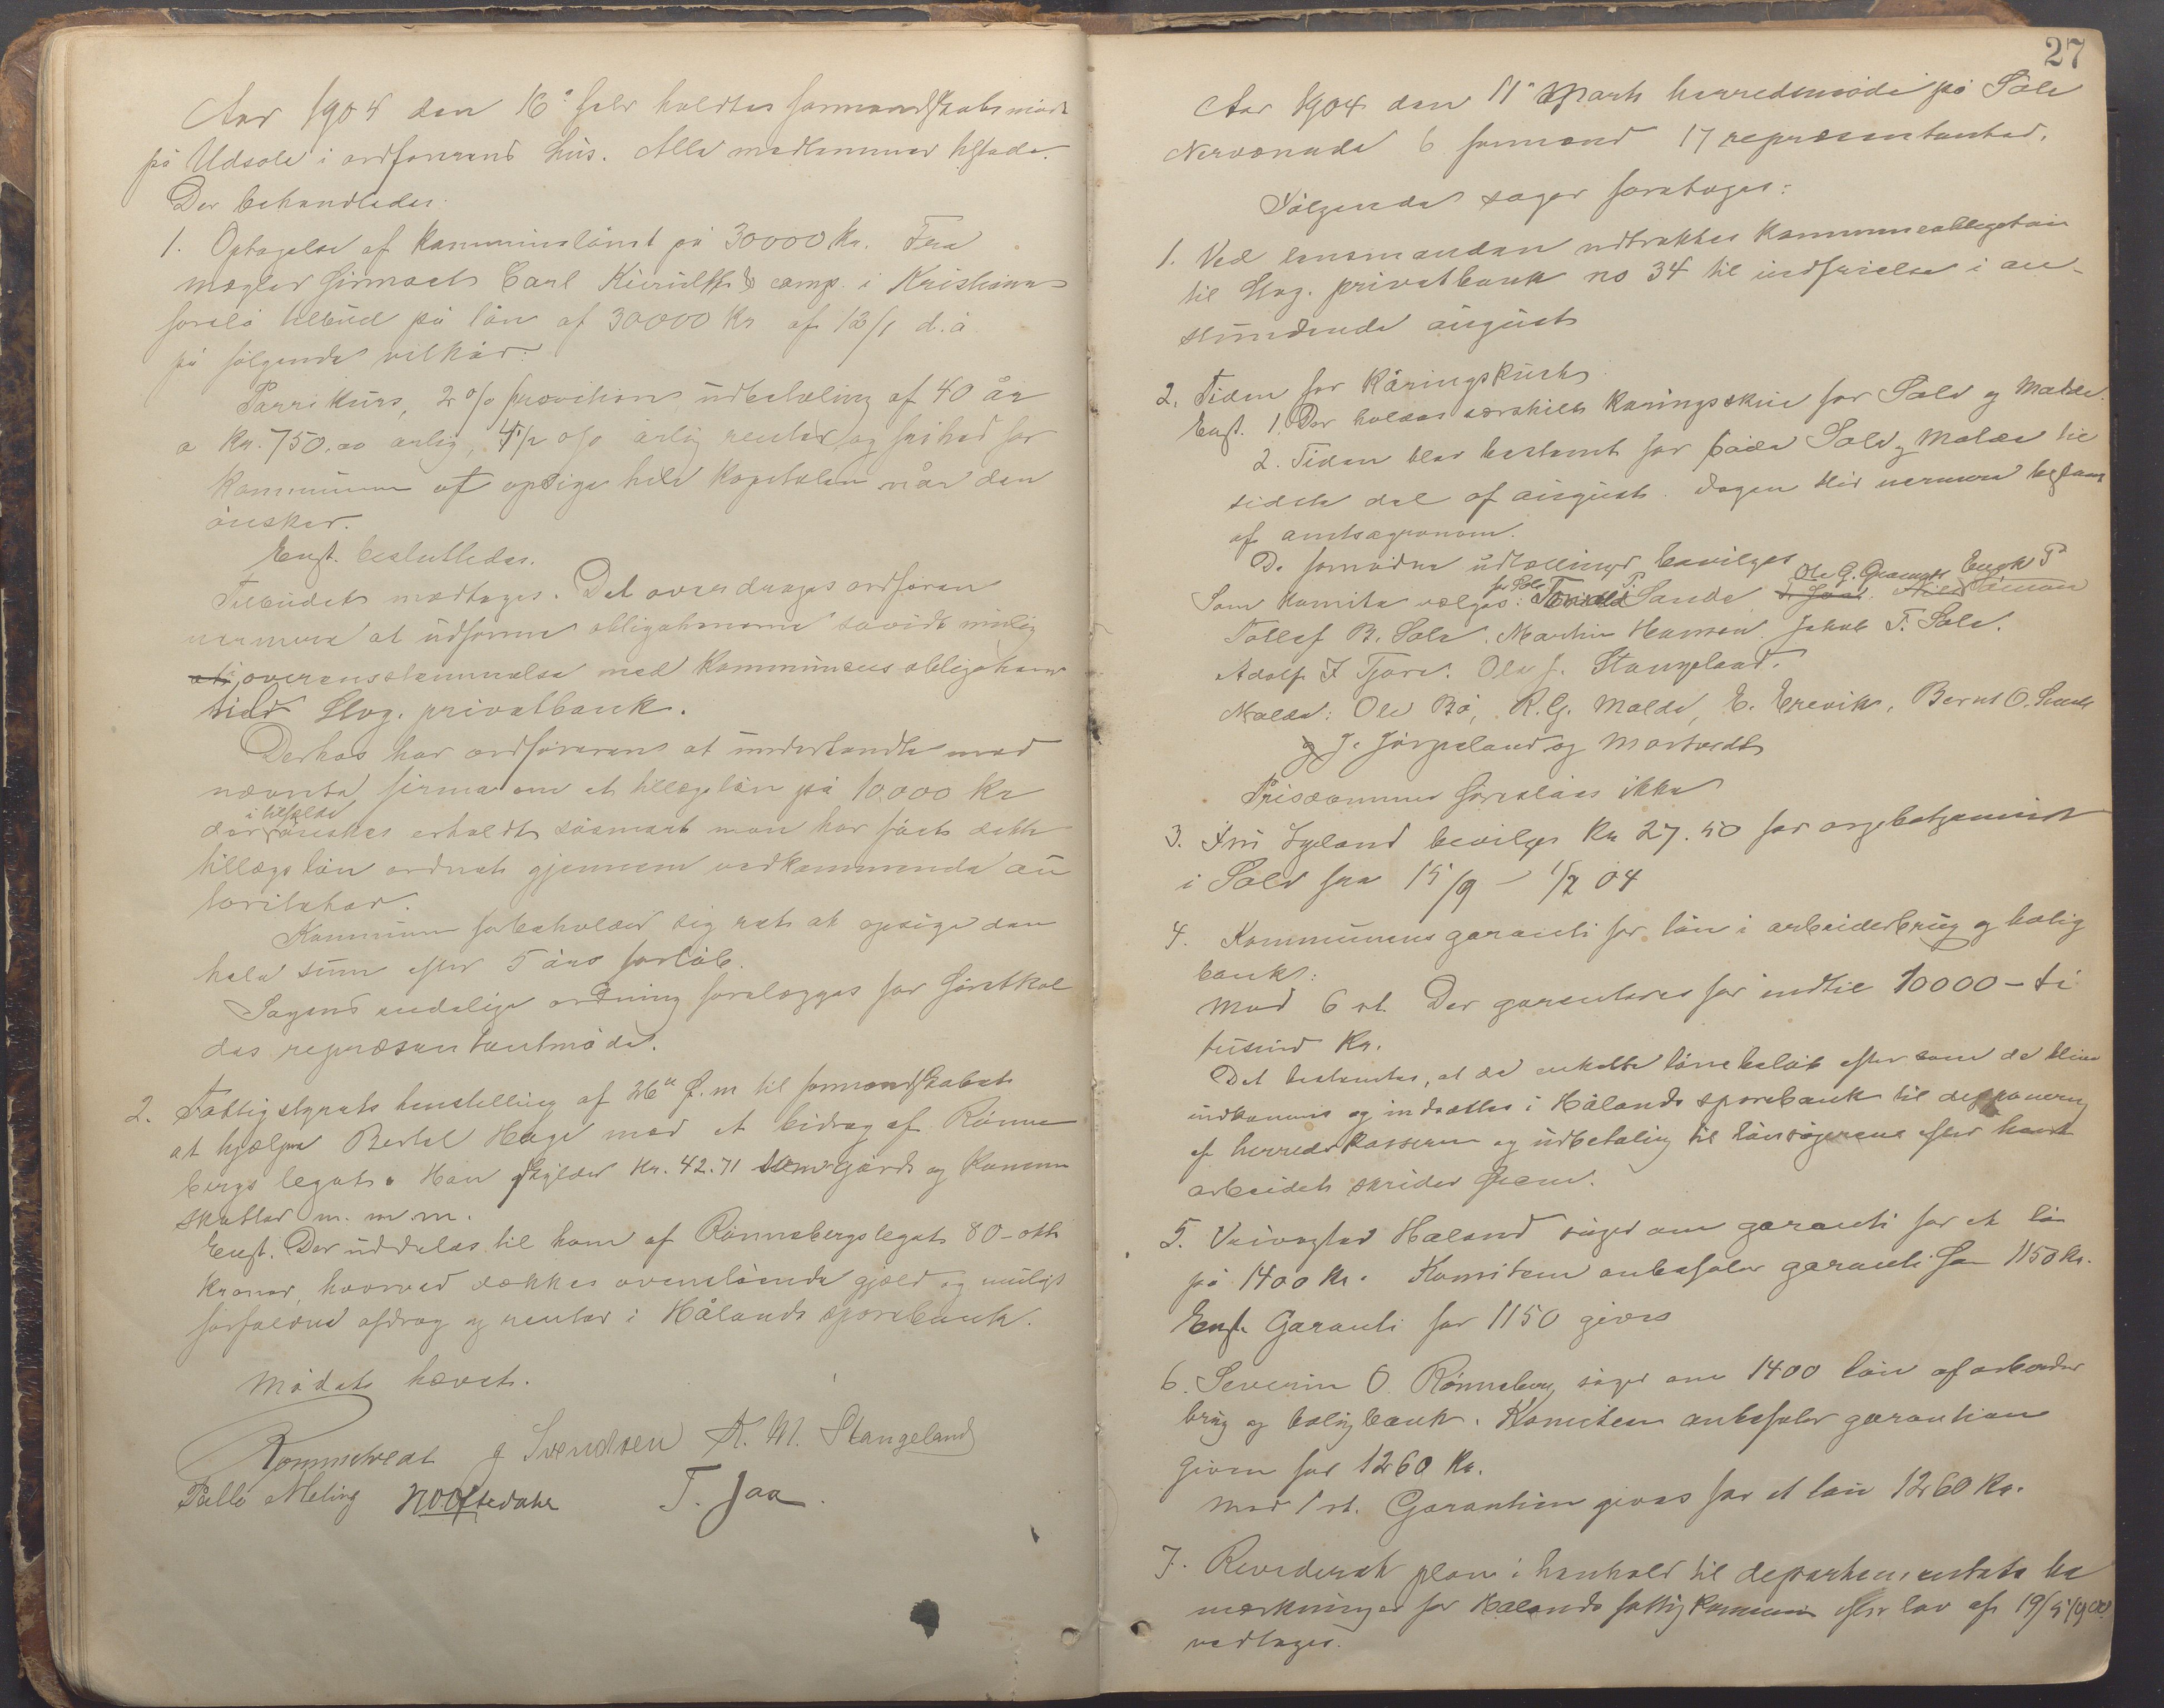 Aar 1904 den 16de febr holdtes formandskabsmøde
på Udsola i ordførerens hus. Alle medlemmer tilstede.
Der behandledes:
1. Optagelse af kommunelånet på 30000 Kr. Fra
mægler firmaet Carl Kierulf & comp. i Kristiania
forelå tilbud på lån af 30000 Kr af 12/1 d.å.
på følgende vilkår:
Parri kurs, 2 % provision udbetaling af 40 år
a Kr. 750.00 årlig, 4½ o/o årlig renter og frihed for
kommunen at opsige hele kapitalen når den
ønsker.
Enst. besluttedes.
Tilbudet modtages. Det overdrages ordføreren
nærmere at udforme obligationerne såvidt mulig
i overensstemmelse med kommunens obligationer
til Stvg. privatbank.
Derhos har ordføreren at underhandle med
nævnte firma om et tillægslån på 10,000 Kr
i tilfælde
der ønskes erholdt såsnart man har fået dette
tillægslån ordnet gjennem vedkommende au
toriteter.
Kommunen forbeholder sig ret at opsige den
hele sum efter 5 års forløb.
Sagens endelige ordning forelægges for førsthol
des repræsentantmøde.
2. Fattigstyrets henstilling af 26de f.m til formandskabet
at hjælpe Bertel Hage med et bidrag af Rønne
bergs legat. Han skylder Kr. 42.71 og kommu
skatter m. m. m.
Enst. Der uddeles til ham af Rønnebergs legat 80 - otti
kroner, hvorved dækkes ovenstående gjæld og muligt
forfaldne afdrag og renter i Hålands sparebank.
Mødet hævet.
Rommetveat J Svendsen A. M. Stangeland
Pallo Meling N O Oftedahl T. Jaa.
27
Aar 1904 den 11te Marts herredsmøde på Sole
Nærværende 6 formænd 17 repræsentanter.
Følgende sager foretoges:
1. Ved lensmanden udtrækkes kommuneobligation
til Stvg. privatbank no 34 til indfrielse i an-
stundende august
2. Tiden for Kåringskuet
Enst. 1. Der holdes særskilt kåringsskue for Sole og Malde.
2. Tiden blev bestemt for både Sole og Malde til
sidste del af august. Dagen blir nærmere bestemt
af amtsagronom.
De fornødne udtællinger bevilges
for Sole T. Ole G. Grannes Enok P
Som komite vælges: Sande
Tollef B. Sole. Martin Hansen. Jakob T. Sole.
Adolf I Tjora. Ole J. Stangeland.
Malde: Ole Bø, R. G. Malde, E. Erevik, Bernt O.
J. Jørpeland og Mortvedt
Prisdommer foreslåes ikke
3. Fru Igland bevilges Kr 27.50 for orgelbetjening
i Sole fra 15/9 - 1/2 04
4. Kommunens garanti for lån i arbeiderbrug og bolig
bank:
Mod 6 st. Der garanteres for indtil 10000 - ti
tusind Kr.
Det bestemtes, at de enkelte lånebeløb efter som de blive
indkommer og indsættes i Hålands sparebank til deponering
af herredskasseren og udbetaling til lånsøgerne efter hvert
arbeidet skrider frem.
5. Veivogter Håland søger om garanti for et lån
på 1400 Kr. Komiteen anbefaler garanti for 1150 Kr.
Enst. Garanti for 1150 gives
6. Severin O. Rønneberg søger om 1400 lån af arbeider
brug og boligbank. Komiteen anbefaler garantien
given for 1260 Kr.
Mod 1 st. Garantien gives for et lån 1260 Kr.
7. Revideret plan i henhold til departementets be
mærkninger for Hålands fattigkommun efter lov af 19/5 1900
vedtages.